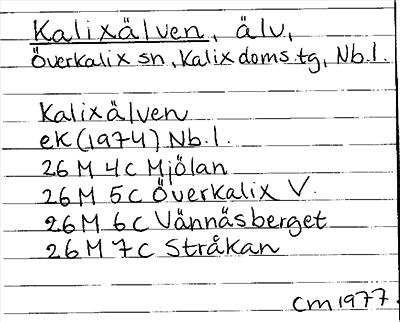 Kalixälven, älv,
Överkalix sn, Kalix doms.tg, Nb.l.
Kalixälven
ek (1974) Nb.l.
26 M 4c Mjölan
26 M 5c Överkalix V.
26 M 6c Vännäsberget
26 M 7c Stråkan
CM 1977.